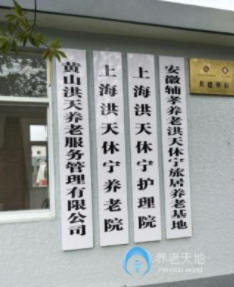 黄山洪天养老服务管理有限公司
上海洪天休宁养老院
上海洪天休宁护理院
安徽辅孝养老洪天休宁旅居养老基地
养老天地